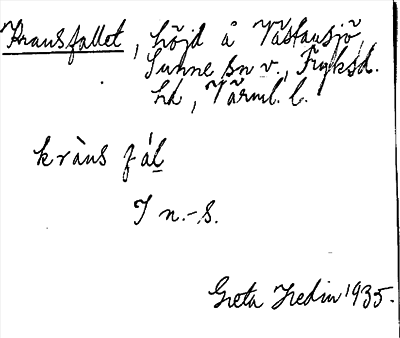 Kransfallet, höjd å Västansjö
Sunne sn v., Fryksd.
hd, Värml. l.
kràns fál
I n.-s.
Greta Hedin 1935.